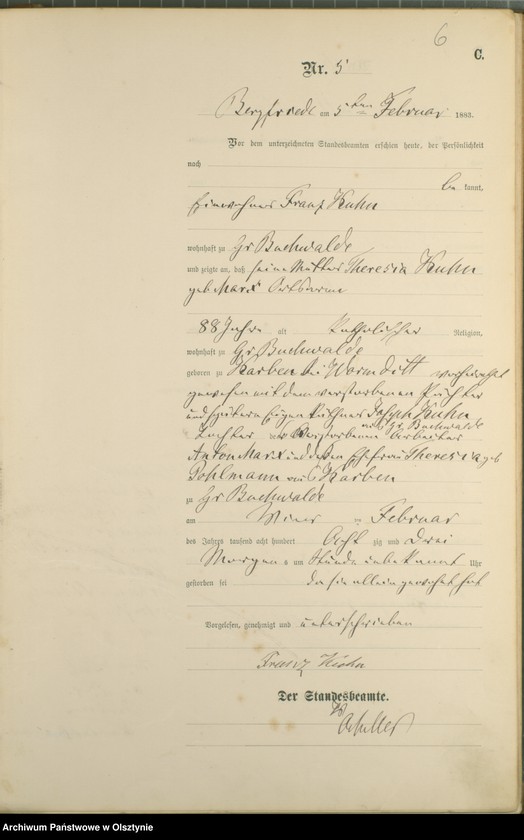 6
C.
Nr. 5
Bergfriede am 5ten Februar 1883.
Vor dem unterzeichneten Standesbeamten erschien heute, der Persönlichkeit
nach
be kannt,
Einwohner Franz Kuhn
wohnhaft zu Gr Buchwalde
und zeigte an, daß seine Mutter Theresia Kuhn
geb Marx Ortsarme
88 Jahre alt katholischer Religion,
wohnhaft zu Gr Buchwalde
geboren zu Karben bei Wormditt verheirathet
gewesen mit dem verstorbenen Pächter
und spätern Eigenkäthner Joseph Kuhn
aus Gr. Buchwalde
Tochter der verstorbenen Arbeiter
Anton Marx und dessen Ehefrau Theresia geb
Pohlmann aus Karben
zu Gr Buchwalde
am Februar
des Jahres tausend acht hundert Acht zig und Drei
Morgens um Stunde unbekannt Uhr
gestorben sei da sie allein gewohnt hat
Vorgelesen, genehmigt und unterschrieben
Franz Kuhn
Der Standesbeamte.
Archiwum Państwowe w Olsztynie